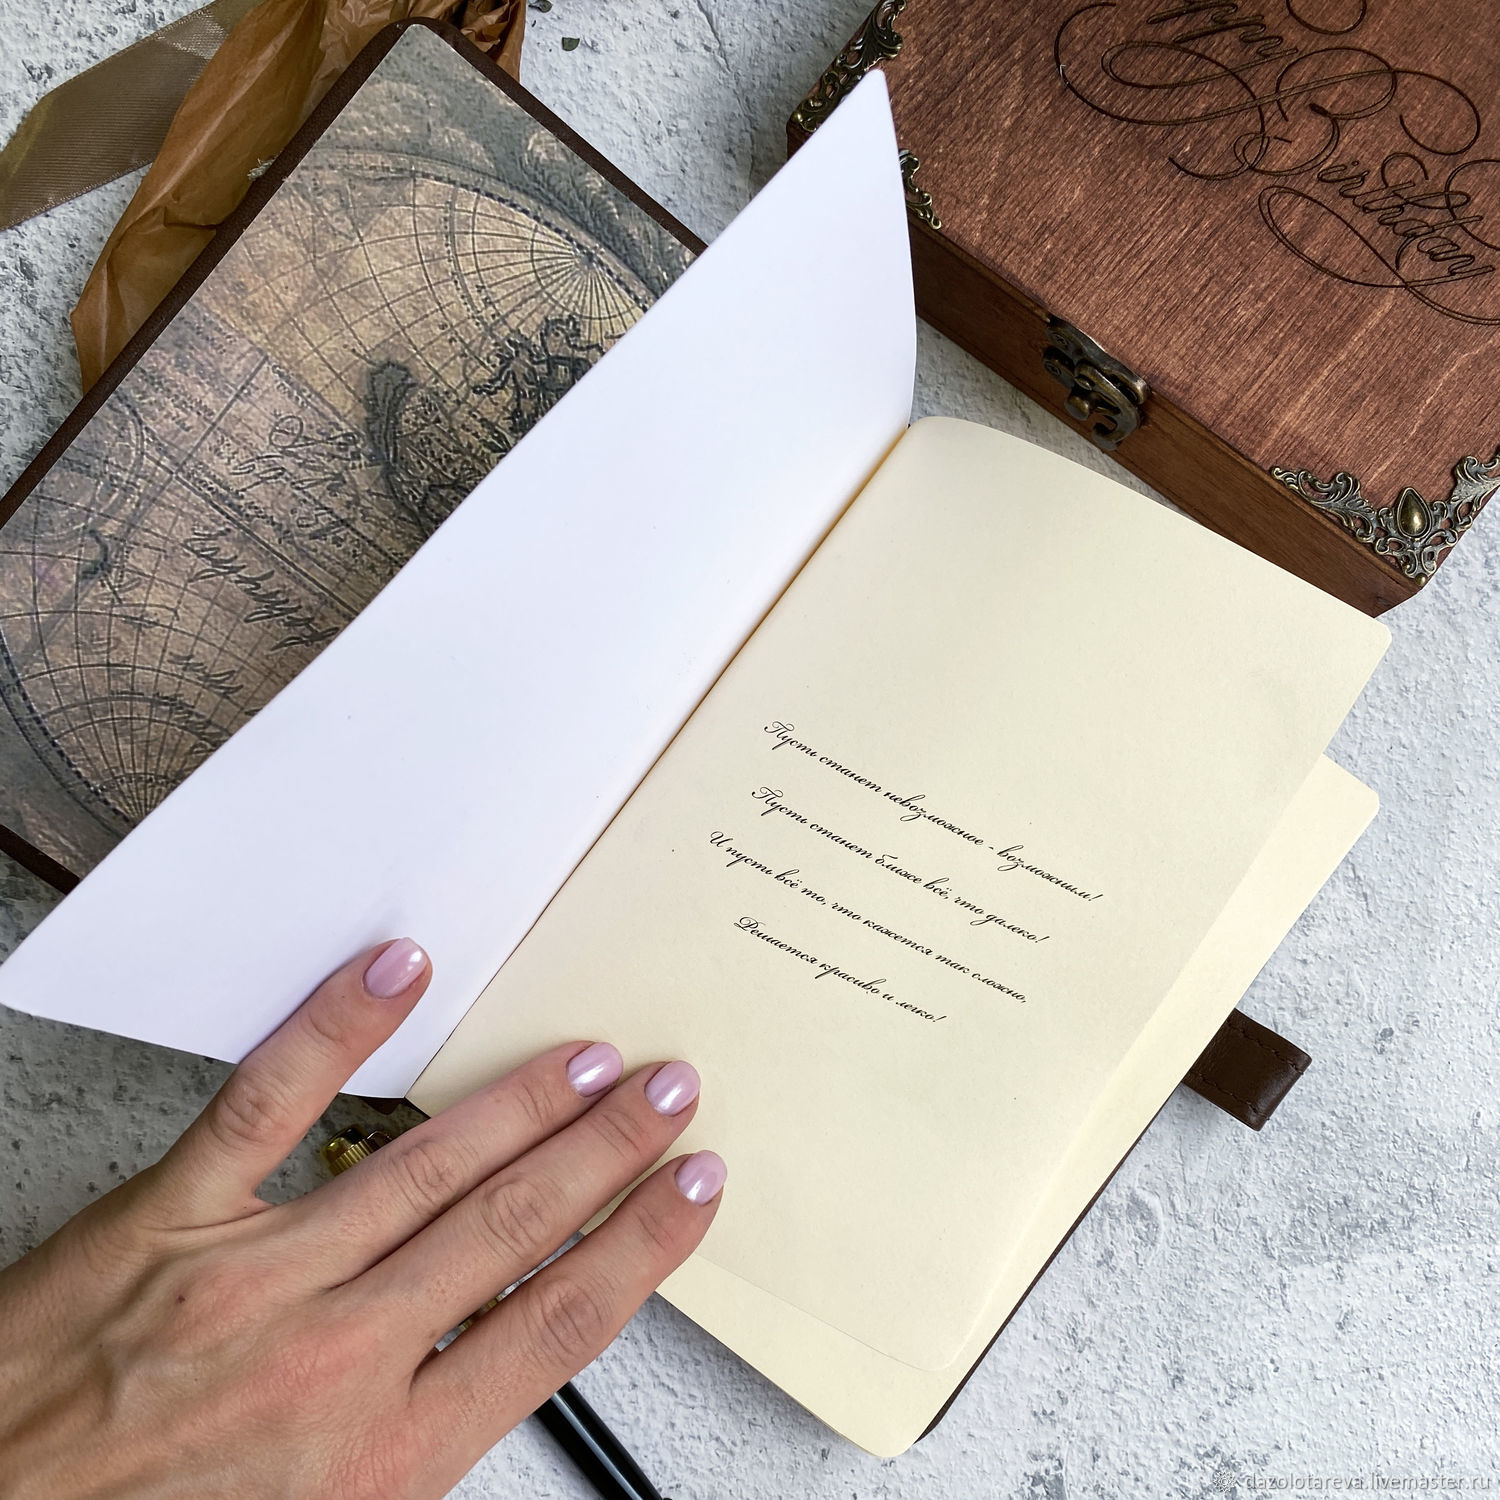 Happy
Birthday
Пусть станет невозможное - возможным!
Пусть станет ближе всё, что далеко!
И пусть всё то, что кажется так сложно,
Решается красиво и легко!
dazolotareva.livemaster.ru